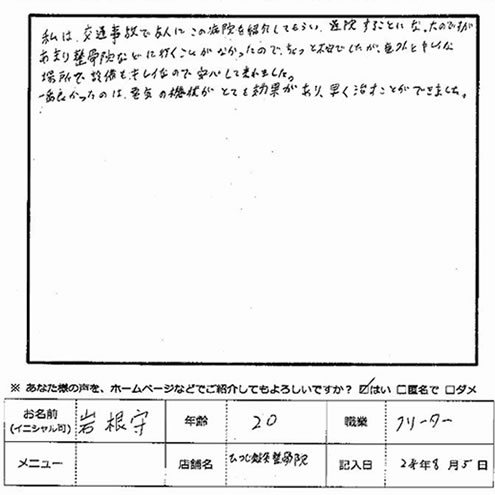 私は、交通事故で友人にこの病院を紹介してもらい、通院することになったのですが
あまり整骨院などに行くことがなかったので、ちょっと不安でしたが、意外とキレイな
場所で設備もキレイなので安心して来れました。
一番良かったのは、電気の機械がとても効果があり、早く治すことができました。
※ あなた様の声を、ホームページなどでご紹介してもよろしいですか? ☑はい □匿名で □ダメ
お名前 (イニシャル可) 岩根守 年齢 20 職業 フリーター
メニュー 店舗名 整骨院 記入日 24年8月5日